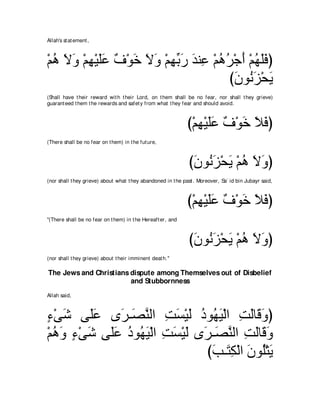 Allah's statement,
﴿فَلَهُمْ أَجْرُهُمْ عِندَ رَبِّهِمْ وَلاَ خَوْفٌ عَلَيْهِمْ وَلاَ هُمْ
يَحْزَنُونَ﴾
(Shall have their reward with their Lord, on them shall be no fear, nor shall they grieve)
guaranteed them the rewards and safety from what they fear and should avoid.
﴿فَلاَ خَوْفٌ عَلَيْهِمْ﴾
(There shall be no fear on them) in the future,
﴿وَلاَ هُمْ يَحْزَنُونَ﴾
(nor shall they grieve) about what they abandoned in the past. Moreover, Sa`id bin Jubayr said,
﴿فَلاَ خَوْفٌ عَلَيْهِمْ﴾
"(There shall be no fear on them) in the Hereafter, and
﴿وَلاَ هُمْ يَحْزَنُونَ﴾
(nor shall they grieve) about their imminent death."
The Jews and Christians dispute among Themselves out of Disbelief
and Stubbornness
Allah said,
﴿وَقَالَتِ الْيَهُودُ لَيْسَتِ النَّصَـرَى عَلَى شَىْءٍ
وَقَالَتِ النَّصَـرَى لَيْسَتِ الْيَهُودُ عَلَى شَىْءٍ وَهُمْ
يَتْلُونَ الْكِتَـبَ﴾